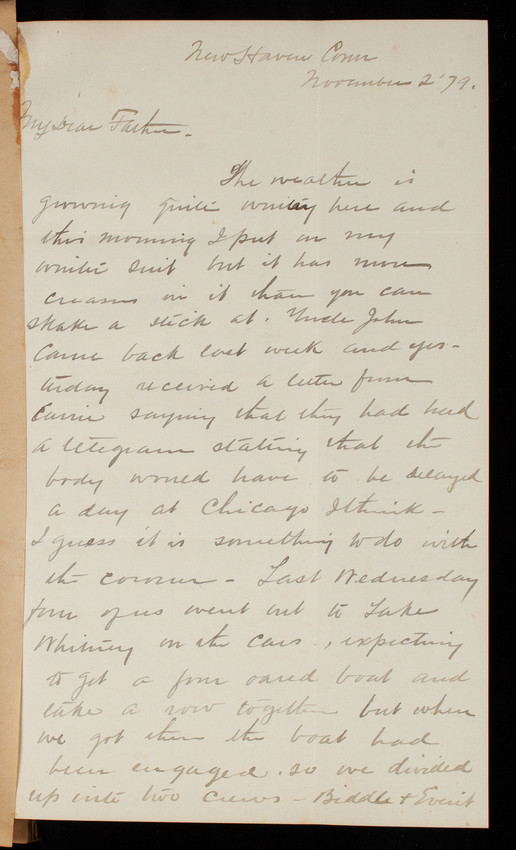 New Haven Conn
November 2 '79.
My Dear Father -
The weather is
growing quite wintry here and
this morning I put on my
winter suit but it has more
creases in it than you can
shake a stick at. Uncle John
Came back last week and yes-
terday received a letter from
Carrie saying that they had had
a telegram stating that the
body would have to be delayed
a day at Chicago I think -
I guess it is something to do with
the coroner - Last Wednesday
four of us went out to Lake
Whitney on the cars, expecting
to get a four oared boat and
take a row together but when
we got there the boat had
been engaged. so we divided
up into two crews - Biddle + Everit